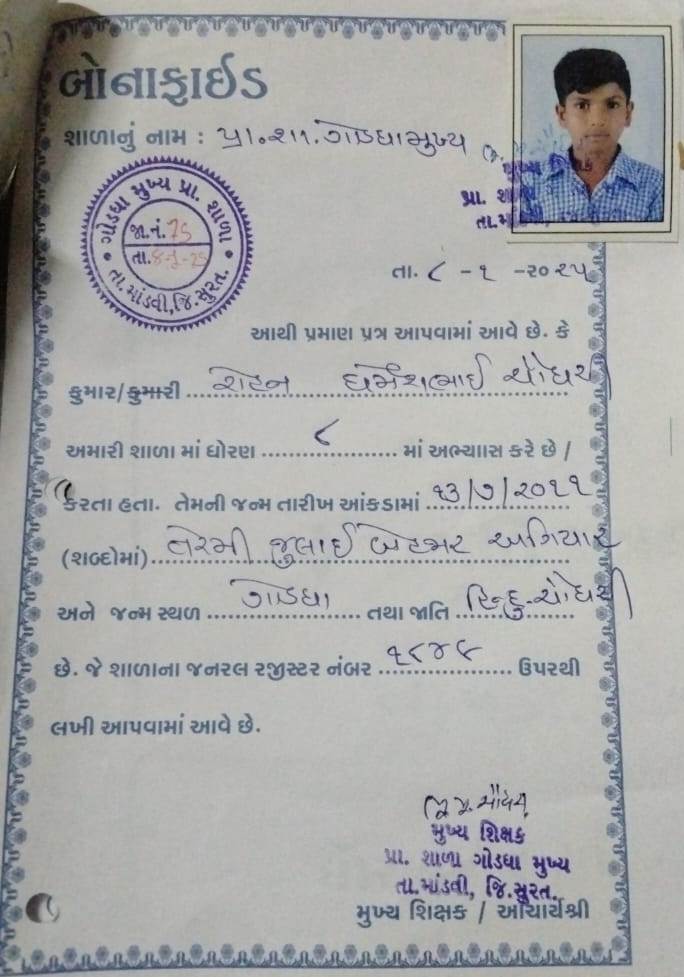 બોનાફાઈડ
શાળાનું નામ : પ્રા.શા. ગોડધામુખ્ય
મુખ્ય શિક્ષક
પ્રા. શાળા
તા.માંડવી,
ગોડધા મુખ્ય પ્રા. શાળા
જા.નં. 75
તા. ૮-૧-25
તા.માંડવી,જિ.સુરત.
તા. ૮ - ૧ - ૨૦૨૫
આથી પ્રમાણ પત્ર આપવામાં આવે છે. કે
કુમાર/કુમારી રોહન ધર્મેશભાઈ ચૌધરી
અમારી શાળા માં ધોરણ ૮ માં અભ્યાસ કરે છે /
કરતા હતા. તેમની જન્મ તારીખ આંકડામાં ૧૩/૭/૨૦૧૧
(શબ્દોમાં) તેરમી જુલાઈ બેહજાર અગિયાર
અને જન્મ સ્થળ ગોડધા તથા જાતિ હિન્દુ-ચૌધરી
છે. જે શાળાના જનરલ રજીસ્ટર નંબર ૧૮૪૯ ઉપરથી
લખી આપવામાં આવે છે.
મુખ્ય શિક્ષક
પ્રા. શાળા ગોડધા મુખ્ય
તા.માંડવી, જિ.સુરત.
મુખ્ય શિક્ષક / આચાર્યશ્રી